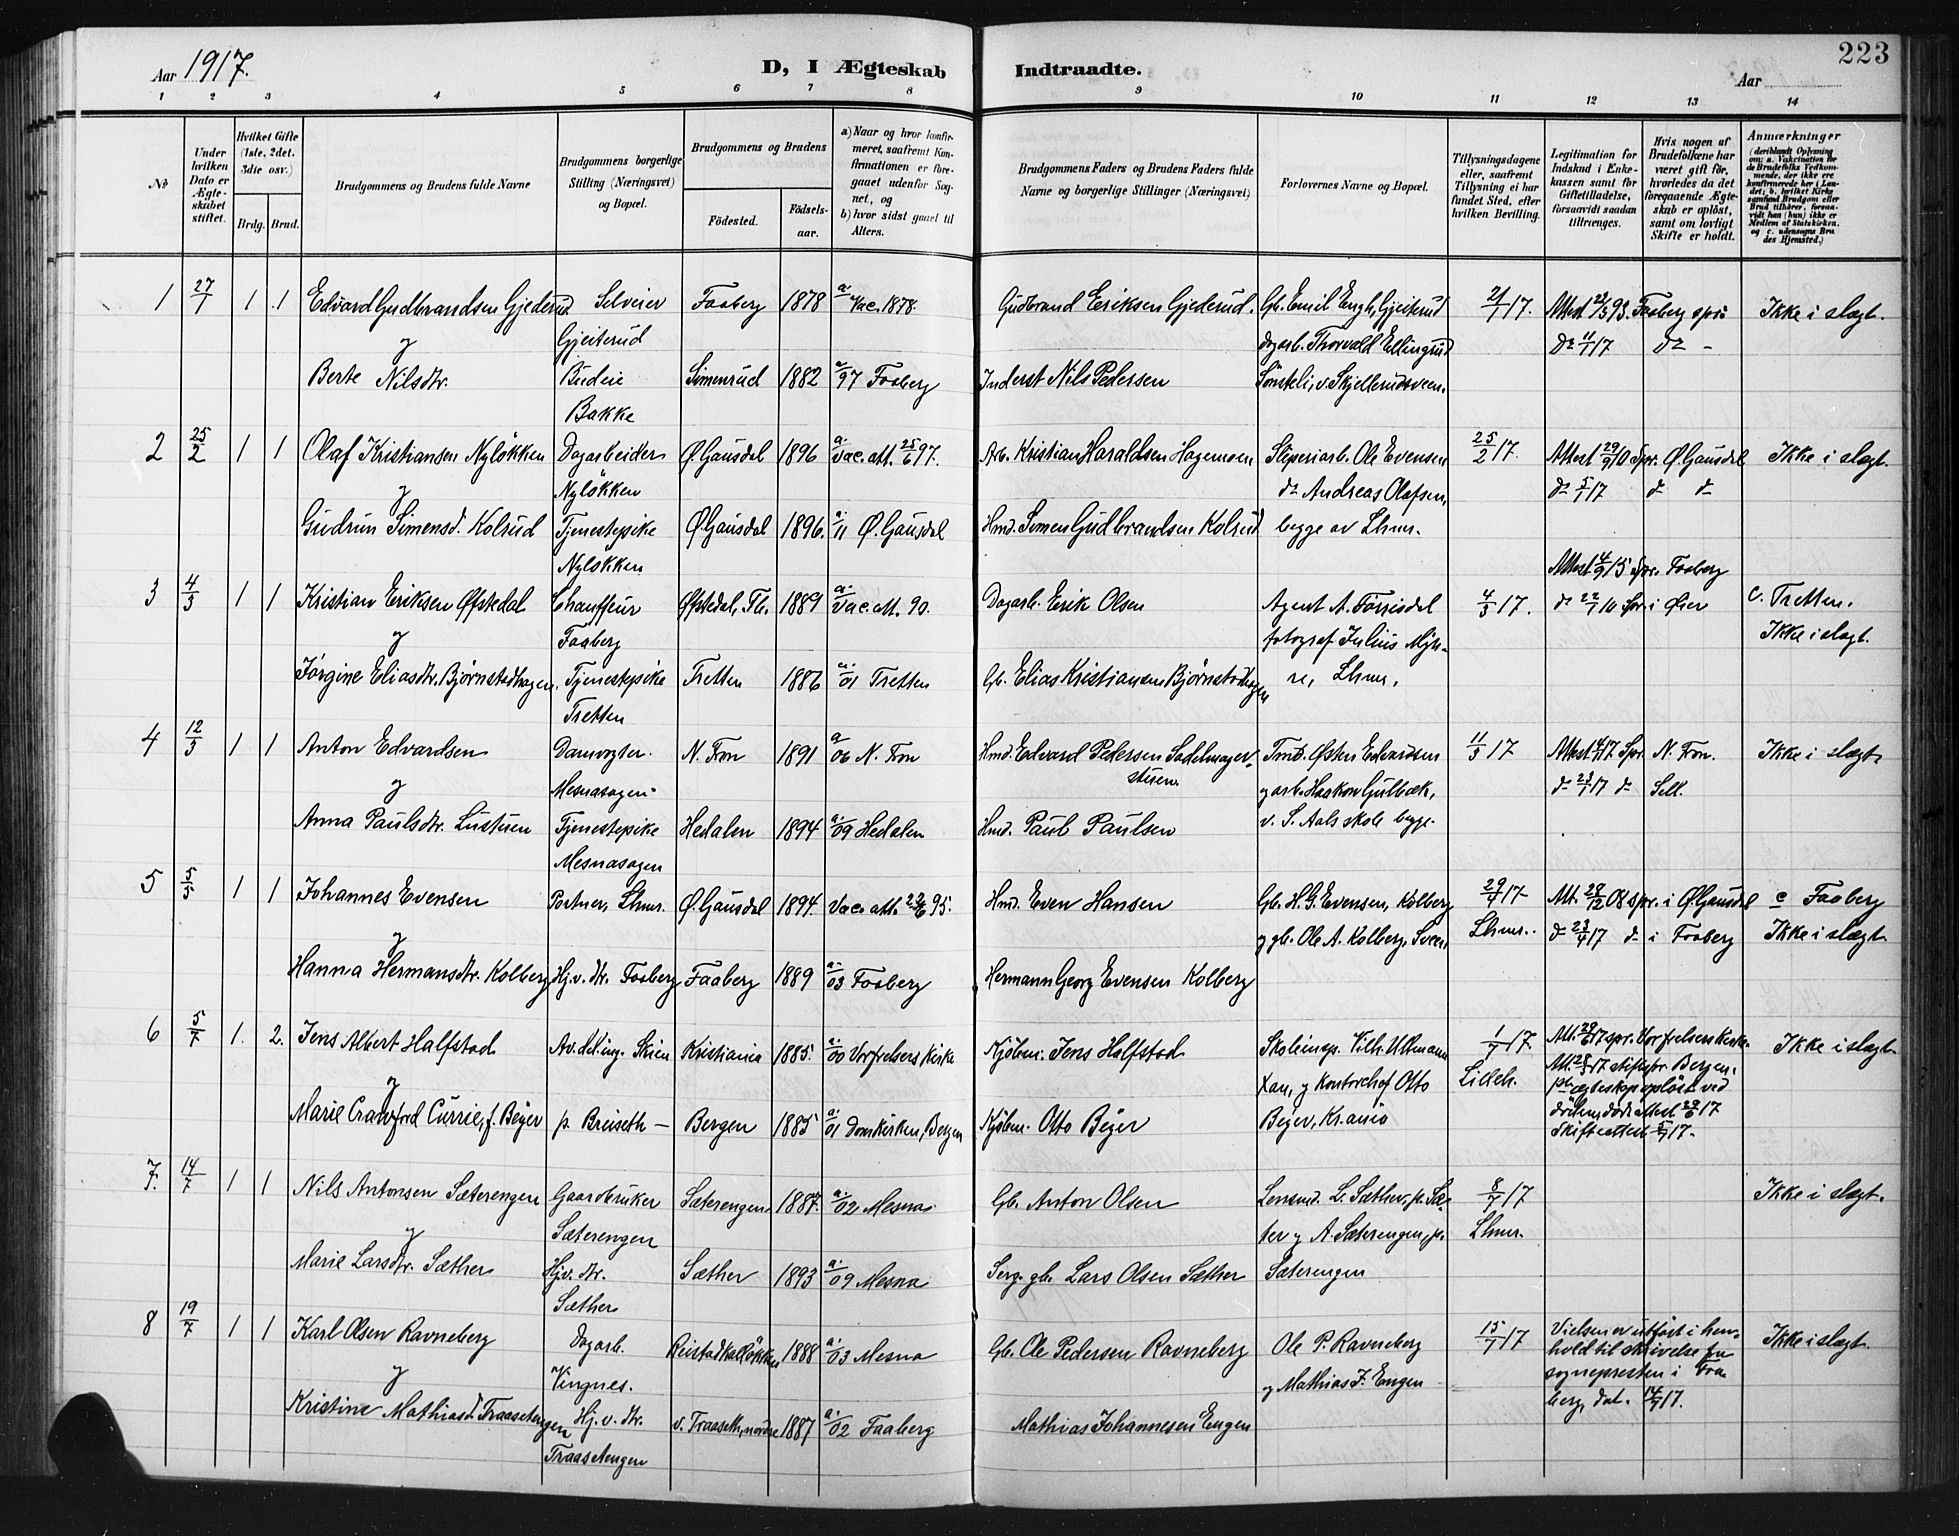 Aar 1917.
D, I Ægteskab Indtraadte.
223
Aar
1 2 3 4 5 6 7 8 9 10 11 12 13 14
No
Under hvilken Dato er Ægteskabet stiftet.
Hvilket Gifte (1ste, 2det, 3die osv.)
Brdg. Brud.
Brudgommens og Brudens fulde Navne
Brudgommens borgerlige Stilling (Næringsvei) og Bopæl.
Brudgommens og Brudens
Fødested. Fødselsaar.
a) Naar og hvor konfirmeret, saafremt Konfirmationen er foregaaet udenfor Sognet, og
b) hvor sidst gaaet til Alters.
Brudgommens Faders og Brudens Faders fulde Navne og borgerlige Stillinger (Næringsvei)
Forlovernes Navne og Bopæl.
Tillysningsdagene eller, saafremt Tillysning ei har fundet Sted, efter hvilken Bevilling.
Legitimation for Indskud i Enkekassen samt for Giftetilladelse, forsaavidt saadan tiltrænges.
Hvis nogen af Brudefolkene har været gift før, hvorledes da det foregaaende Ægteskab er opløst, samt om lovligt Skifte er holdt.
Anmærkninger
(deriblandt Oplysning om: a. Vakcination for de Brudefolks Vedkommende, der ikke ere konfirmerede her i Landet; b. hvilket Kirkesamfund Brudgom eller Brud tilhører, forsaavidt han (hun) ikke er Medlem af Statskirken, og c. udensogns Brudes Hjemsted.)
1 27/1 1 1 Edvard Gudbrandsen Gjederud Selveier Faaberg 1878 a/ Vac. 1878. Gudbrand Eriksen Gjederud. Gb. Emil Engh, Gjeiterud 21/1 17. Attest 93. Faaberg Ikke i slægt.
y Gjeiterud dagarb. Thorvald Ellingsrud do 11/1 17 do -
Berte Nilsdtr. Budeie Simenrud 1882 a/97 Faaberg Inderst Nils Pedersen
Bakke
2 25/2 1 1 Olaf Kristiansen Nyløkken Dagarbeider Ø. Gausdal 1896 a. Vac. att. 25/6 97. Arb. Kristian Haraldsen Hagemoen Sliperiarb. Ole Evensen 25/2 17. Attest 29/9 10 Spr. Ø. Gausdal Ikke i slægt
y Nyløkken do Andreas Olafsen, do 5/1 17 do do
Gudrun Simensd. Kolsrud Tjenestepike Ø. Gausdal 1896. a./11 Ø. Gausdal Hmd. Simen Gudbrandsen Kolsrud begge av Lhmr.
Nyløkken
Attest 4/9 15 Spr. Faaberg
3 4/3 1 1 Kristian Eriksen Øfstedal Chauffeur Øfstedal, Fb. 1889 a. Vac. att. 90. Dagarb. Erik Olsen Agent A. Forrisdal 4/3 17. do 22/1 10 Spr. i Øier c. Tretten.
y Faaberg fotograf Julius Ikke i slægt.
Jørgine Eliasdtr. Bjørnstadhagen, Tjenestepike Tretten 1886 a./01 Tretten Gb. Elias Kristiansen Bjørnstadhagen Lhmr.
Tretten
4 12/3 1 1 Anton Edvardsen Damvogter N. Fron 1891 a/06 N. Fron Hmd. Edvard Pedersen Sadelmagerstuen Tmd. Østen Edvardsen 11/3 17 Attest 17 Spr. N. Fron. Ikke i slægt
y Mesnasagen y arb. Haakon Gulbæk, do 23/1 17 do Sell.
Anna Paulsdtr. Lustuen Tjenestepike Hedalen 1894 a./09 Hedalen Hmd. Paul Paulsen v. S. Aals skole begge.
Mesnasagen
5 5/5 1 1 Johannes Evensen Portner, Lhmr. Ø. Gausdal 1894. Vac. att. 95. Hmd. Even Hansen Gb. H. G. Evensen, Kolberg 29/4 17 Att. 28/12 08 spr. i Ø. Gausdal c Faaberg
y y gb. Ole A. Kolberg, Sveen, Lhmr. do 23/4 17 do i Faaberg Ikke i slægt
Hanna Hermansdtr. Kolberg Hj. v. dtr. Faaberg Faaberg 1889 a./03 Faaberg Hermann Georg Evensen Kolberg
6 5/7 1. 2. Jens Albert Halfstad Av. del. ing. Skien Kristiania 1885 a./00 Vorfrelsers kirke Kjøbm. Jens Halfstad Skoleinsp. Vilh. Ullmann 1/7 17. Att. 17 spr. Vorfrelsers kirke Ikke i slægt
y Xan, y kontorchef Otto Lilleh. Att. 17 stiftspr. Bergen.
ægteskap opløst ved
Marie Crawford Currie, f. Beyer p. Breiseth - Bergen 1885 a./01 Domkirken, Bergen Kjøbm. Otto Beyer Beyer, Kr.ania døden, dødsattest 17
Skifteattest 17.
7. 14/7 1 1 Nils Antonsen Sæterengen Gaardbruker Sæterengen 1887. a./02 Mesna Gb. Anton Olsen Lensmd. L. Sæther, p. Sæ- 8/7 17 Ikke i slægt.
y Sæterengen ter y A. Sæterengen, p. Lhmr.
Marie Larsdtr. Sæther Hj. v. dtr. Sæther 1893 a./09 Mesna Serg. gb. Lars Olsen Sæther Sæterengen
Sæther
8 19/7 1 1 Karl Olsen Ravneberg Dagarb. Reistadkalløkken 1888 a./03 Mesna Gb. Ole Pedersen Ravneberg Ole P. Ravneberg 15/7 17 Vielsen er utført i hen- Ikke i slægt
y Vingnes. y Mathias J. Engen hold til skrivelse fra
sognepresten i Faa-
berg, dat. 14/7 17.
Kristine Mathiasd. Traasetengen Hj. v. dtr. v. Traaseth, nordre 1887 a./02 Faaberg Mathias Johannesen Engen
Traasetengen